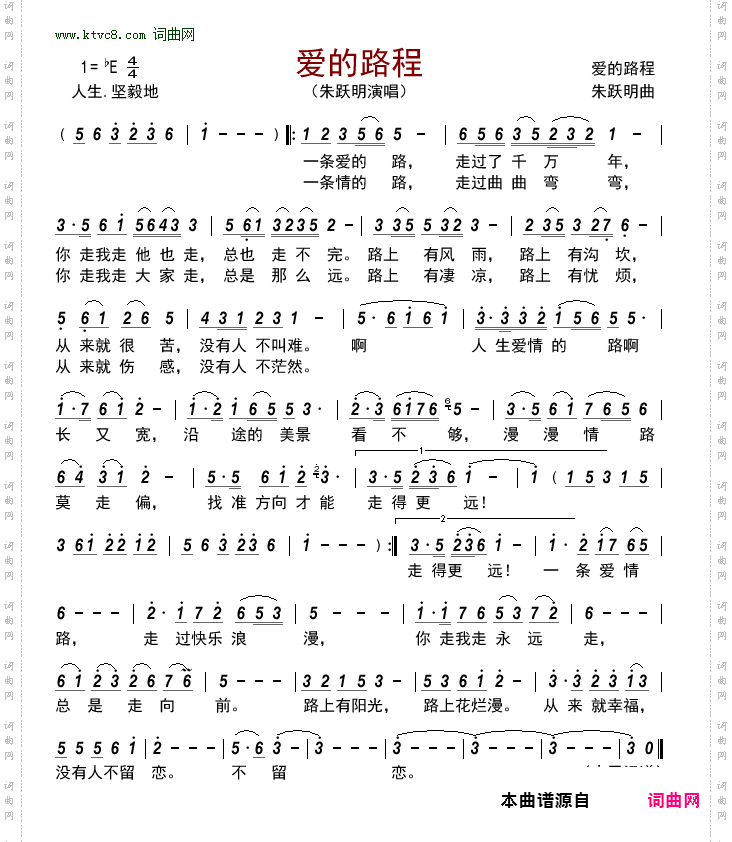 www.ktvc8.com 词曲网
爱的路程
1=♭E 4/4
爱的路程
人生.坚毅地
（朱跃明演唱）
朱跃明曲
( 5 6 3 2 3 6 | 1 - - - ) ‖: 1 2 3 5 6 5 - | 6 5 6 3 5 2 3 2 1 - |
一条爱的 路， 走过了 千 万 年，
一条情的 路， 走过曲 曲 弯 弯，
3· 5 6 1 5 6 4 3 3 | 5 6 1 3 2 3 5 2 - | 3 3 5 5 3 2 3 - | 2 3 5 3 2 7 6 - |
你 走我走 他 也 走， 总也 走 不 完。 路上 有风 雨， 路上 有沟 坎，
你 走我走 大 家 走， 总是 那 么 远。 路上 有凄 凉， 路上 有忧 烦，
5 6 1 2 6 5 | 4 3 1 2 3 1 1 - | 5· 6 1 6 1 | 3· 3 3 2 1 5 6 5 5 - |
从 来就 很 苦， 没有人 不叫难。 啊 人 生爱情 的 路啊
从 来就 伤 感， 没有人 不茫然。
1· 7 6 1 2 - | 1· 2 1 6 5 5 3· | 2· 3 6 1 7 6 6 5 - | 3· 5 6 1 7 6 5 6 |
长 又 宽， 沿 途的 美景 看 不 够， 漫 漫 情 路
6 4 3 1 2 - | 5· 5 6 1 2 2 3· | 1 3· 5 2 3 6 1 - | 1 ( 1 5 3 1 5 |
莫 走 偏， 找 准方向 才能 走 得 更 远！
3 6 1 2 2 1 2 | 5 6 3 2 3 6 | 1 - - - ) :‖ 2 3· 5 2 3 6 1 - | 1· 2 1 7 6 5 |
走 得更 远！ 一 条 爱 情
6 - - - | 2· 1 7 2 6 5 3 | 5 - - - | 1· 1 7 6 5 3 7 2 | 6 - - - |
路， 走 过快乐 浪 漫， 你 走我走 永 远 走，
6 1 2 3 2 6 7 6 | 5 - - - | 3 2 1 5 3 - | 5 3 6 1 2 - | 3· 3 2 3 1 3 5 |
总 是 走 向 前。 路上有阳光， 路上花烂漫。 从 来 就幸福，
5 5 5 6 1 | 2 - - - | 5· 6 3 - | 3 - - - | 3 - - - | 3 - - - | 3 0 ‖
没有人不留 恋。 不 留 恋。
本曲谱源自 词曲网
词曲网